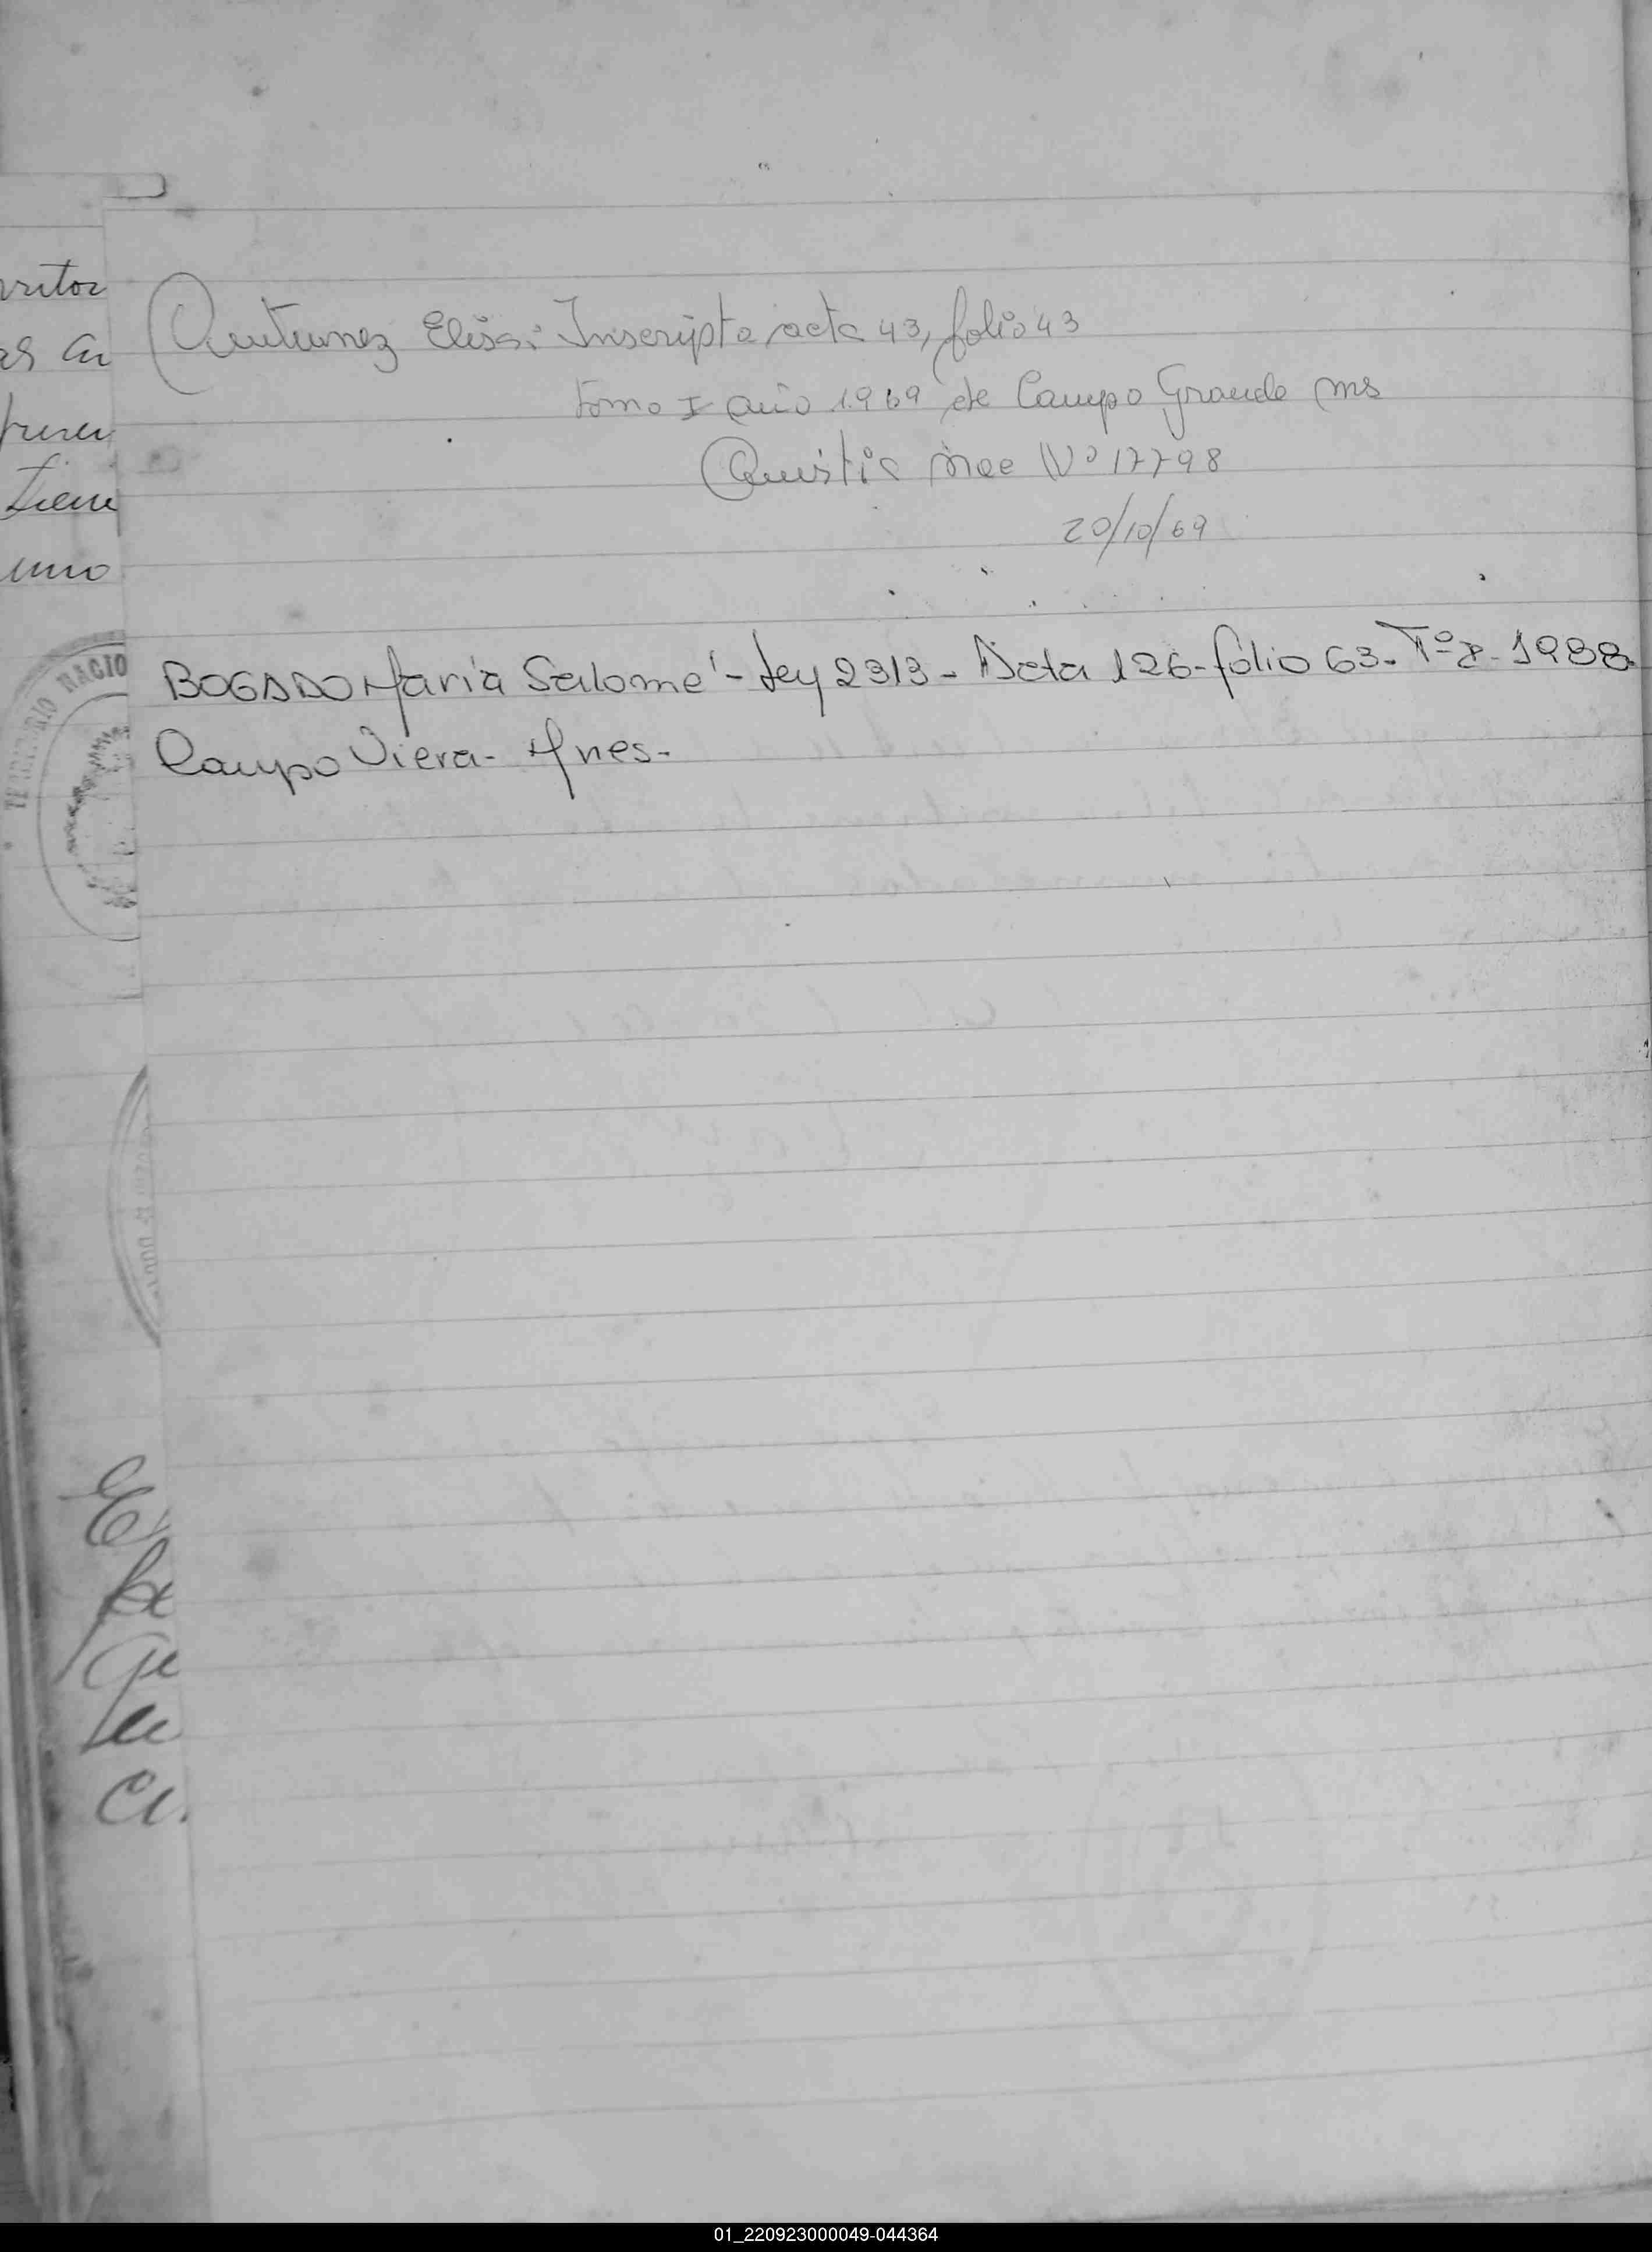 Antunez Elisa: Inscripta acta 43, folio 43
tomo I año 1969 de Campo Grande Mns
Amnistia Nac Nº 17798
20/10/69
BOGADO María Salomé - Ley 2313 - Acta 126 - folio 63 - Tº 2 - 1988
Campo Viera - Mnes.
ritor
as en
tiene
uno
TERRITORIO NACIO
01_220923000049-044364